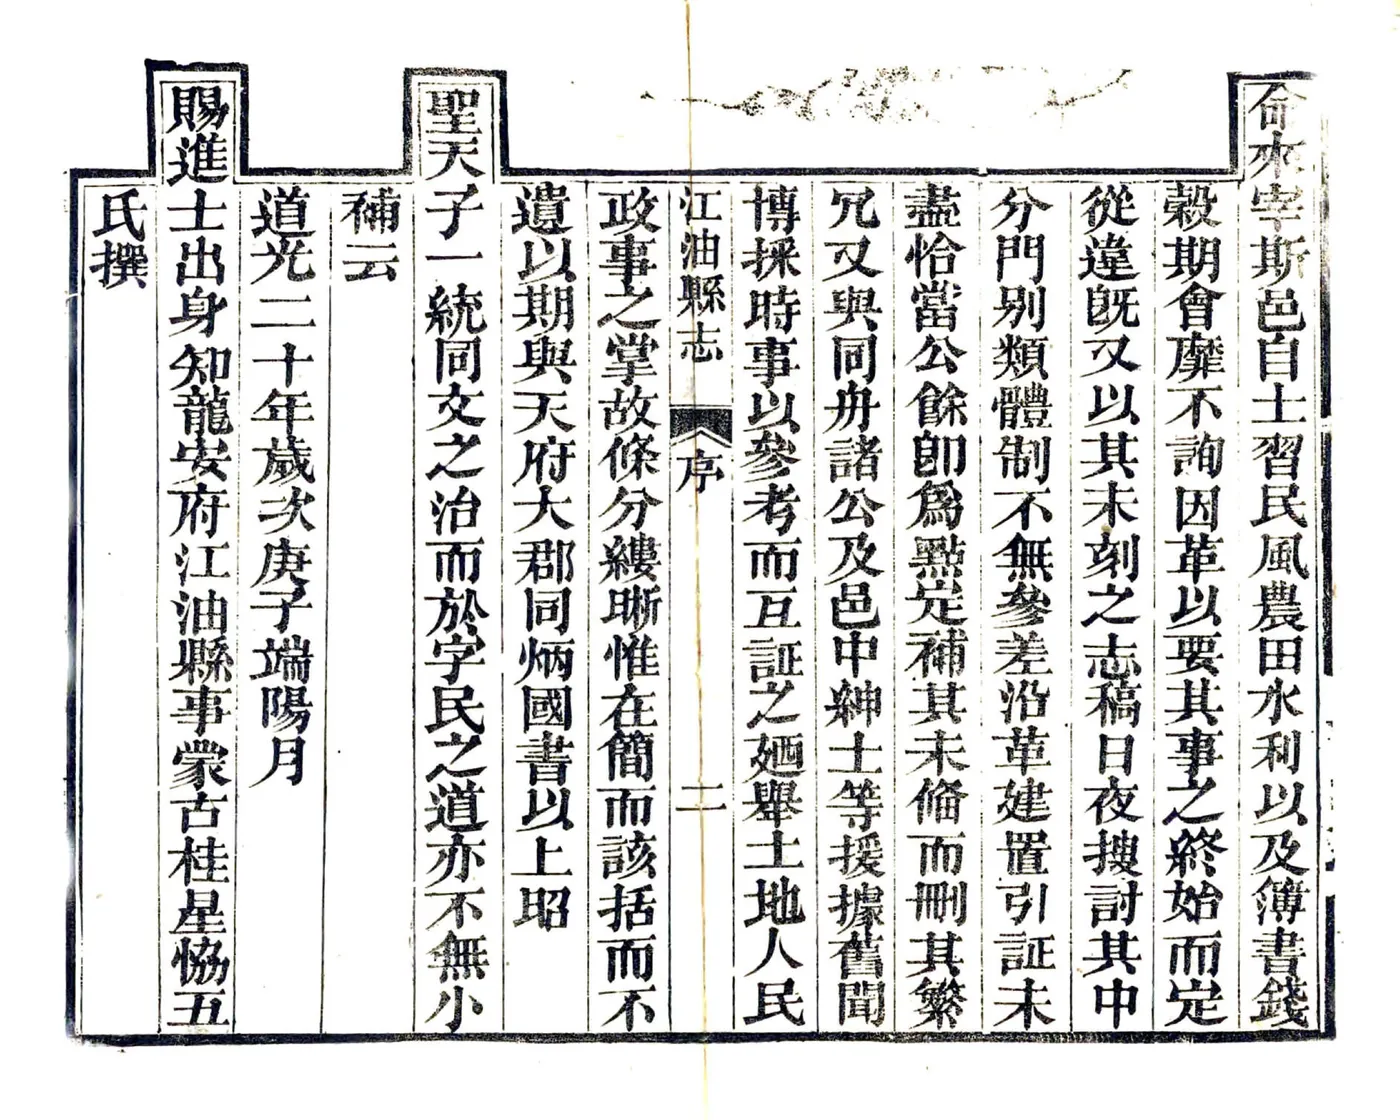 命來宰斯邑自士習民風農田水利以及簿書錢
穀期會靡不詢因革以要其事之終始而定
從違旣又以其未刻之志稿日夜搜討其中
分門别類體制不無參差沿革建置引証未
盡恰當公餘卽爲點定補其未俻而刪其繁
冗又與同舟諸公及邑中紳士等援據舊聞
博採時事以參考而互証之廼舉土地人民
江油縣志 序 二
政事之掌故條分縷晰惟在簡而該括而不
遺以期與天府大郡同炳國書以上昭
聖天子一統同文之治而於字民之道亦不無小
補云
道光二十年歲次庚子端陽月
賜進士出身知龍安府江油縣事蒙古桂星恊五
氏撰